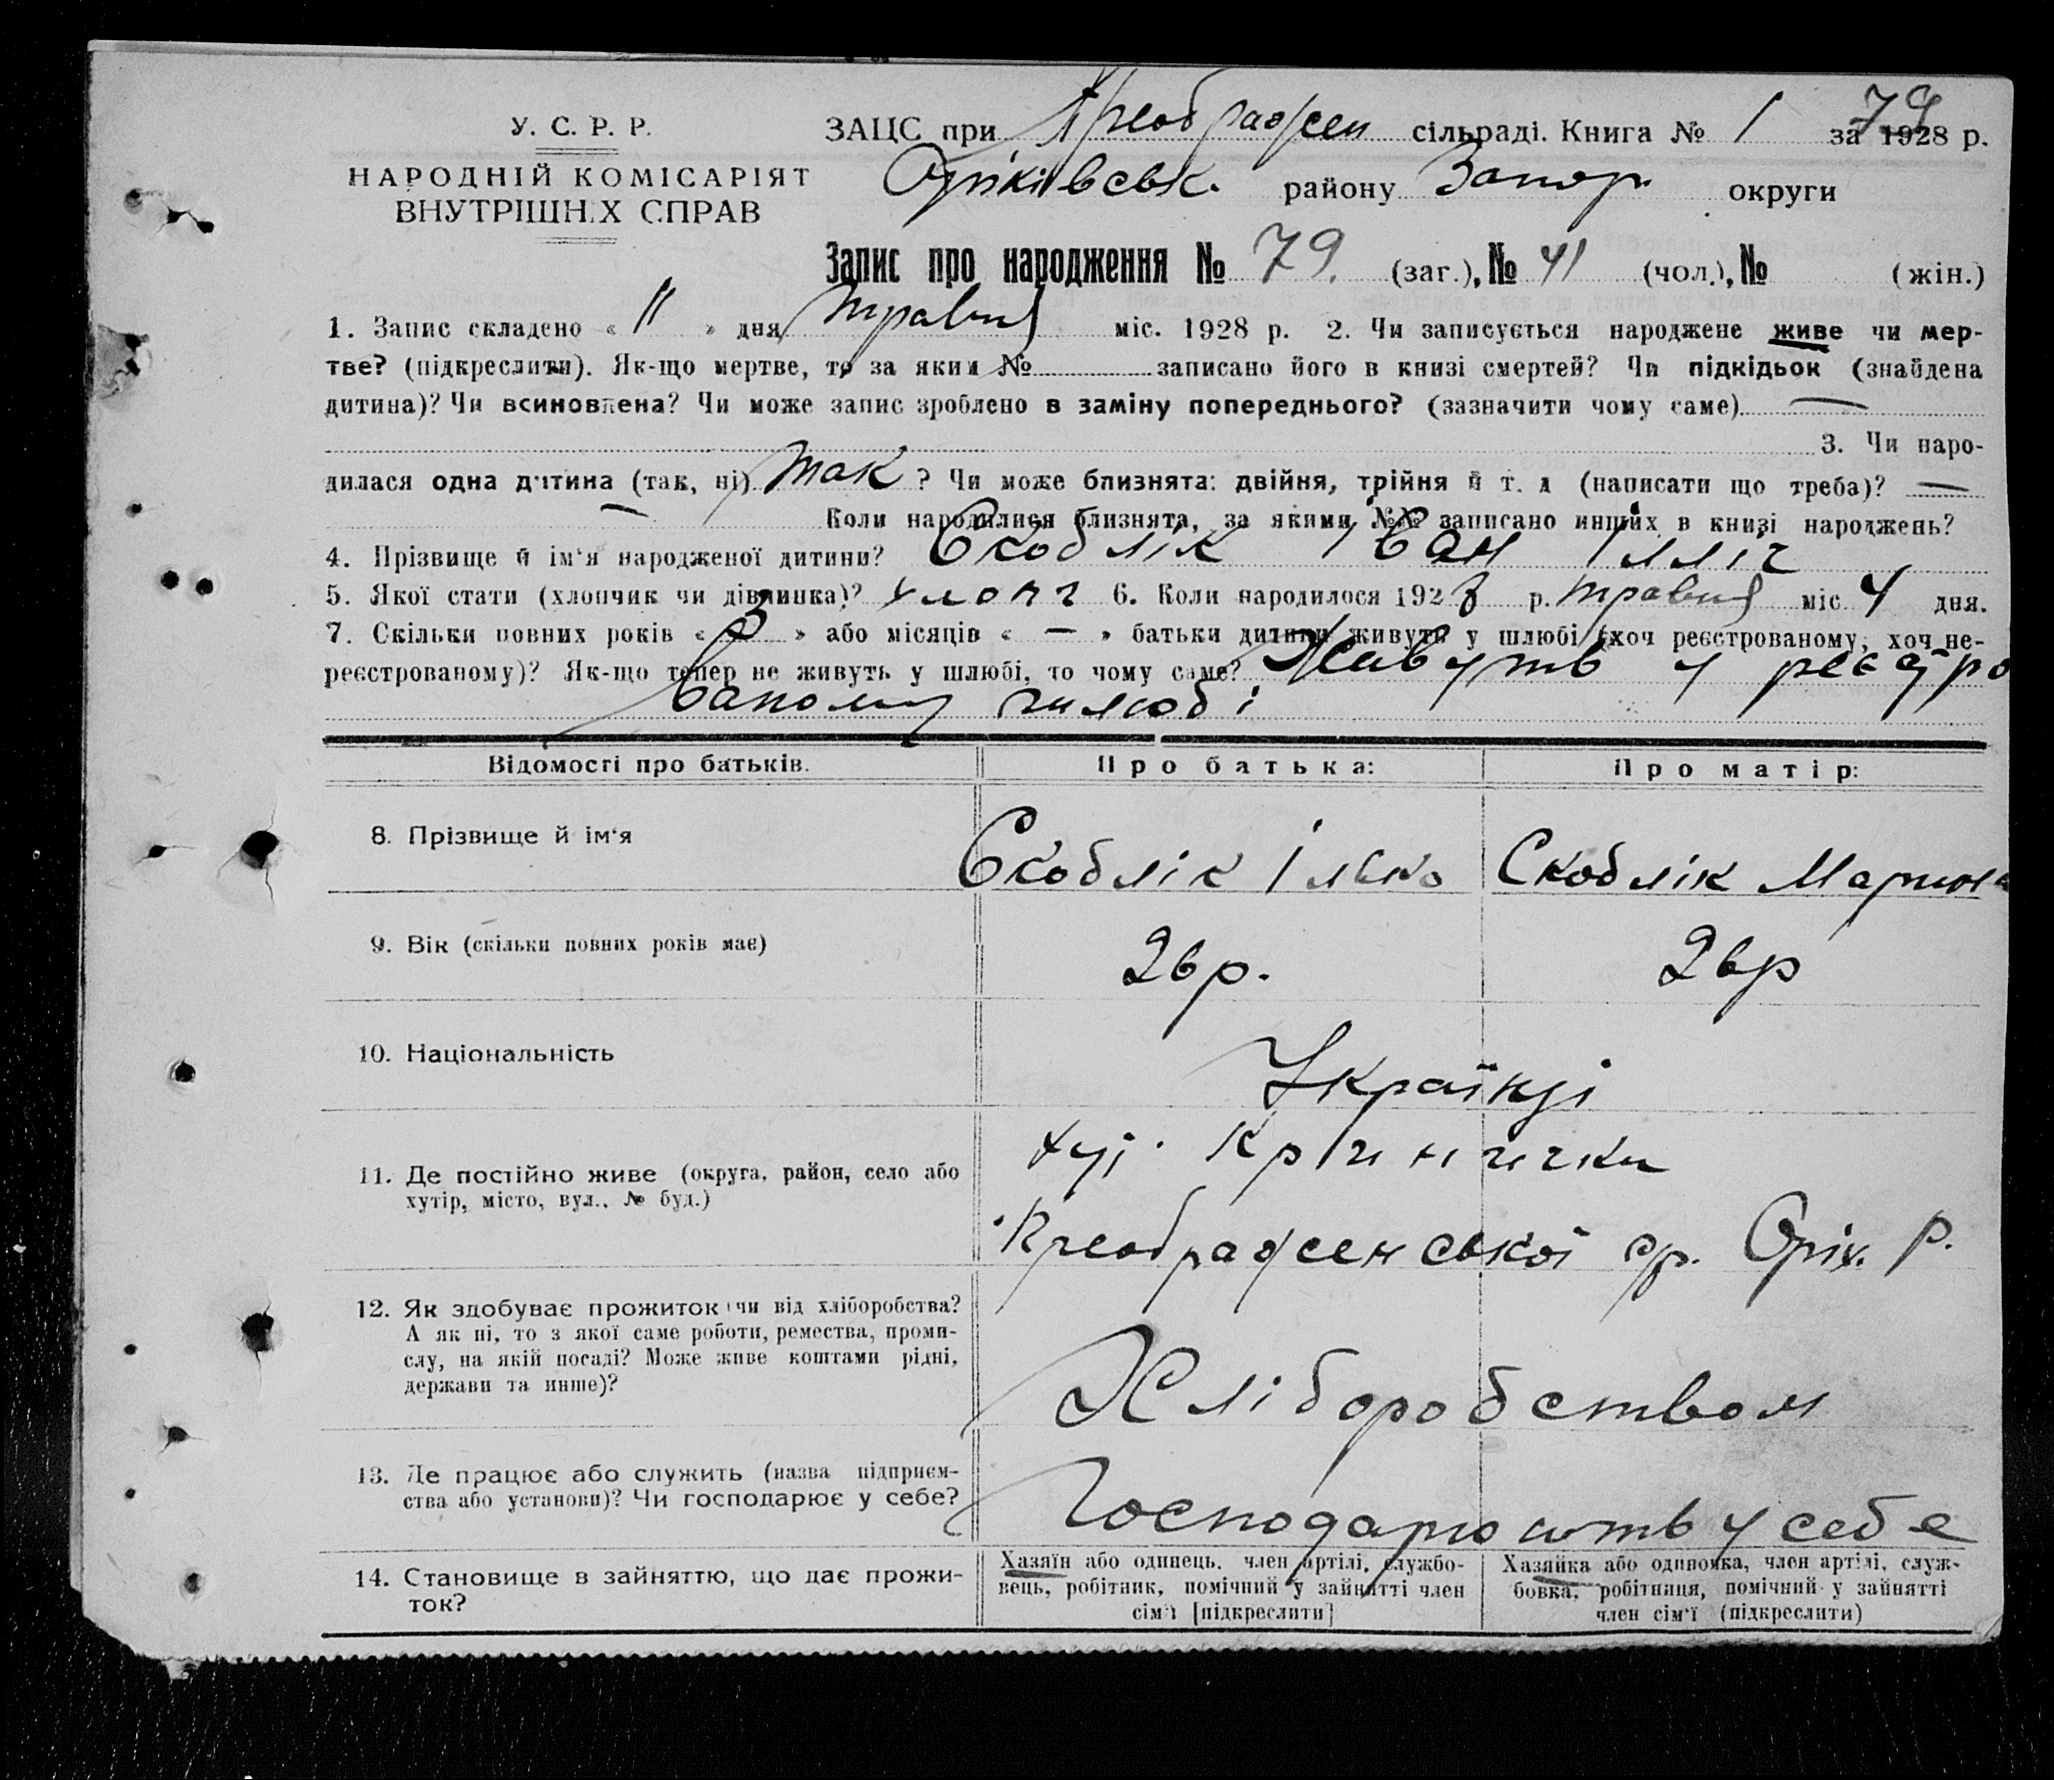 79
У. С. Р. Р.
ЗАЦС при Преображен сільраді. Книга № 1 за 1928 р.
НАРОДНІЙ КОМІСАРІЯТ
ВНУТРІШНІХ СПРАВ
Оріхівськ. району Запор. округи
Запис про народження № 79. (заг.), № 41 (чол.), № (жін.)
1. Запис складено « 11 » дня травня міс. 1928 р. 2. Чи записується народжене живе чи мер-
тве? (підкреслити). Як-що мертве, то за яким № записано його в книзі смертей? Чи підкідьок (знайдена
дитина)? Чи всиновлена? Чи може запис зроблено в заміну попереднього? (зазначити чому саме) —
3. Чи наро-
дилася одна дитина (так, ні) так ? Чи може близнята: двійня, трійня й т. д (написати що треба)? —
— Коли народилися близнята, за якими №№ записано инших в книзі народжень?
4. Прізвище й ім'я народженої дитини? Скоблік Іван Ілліч
5. Якої стати (хлопчик чи дівчинка)? хлопч 6. Коли народилося 1928 р. травня міс 4 дня.
7. Скільки повних років « » або місяців « — » батьки дитини живуть у шлюбі (хоч реєстрованому, хоч не-
реєстрованому)? Як-що тепер не живуть у шлюбі, то чому саме? Живуть у реєстро
ваному шлюбі
Відомості про батьків. Про батька: Про матір:
8. Прізвище й ім'я Скоблік Ілько Скоблік Марина
9. Вік (скільки повних років має) 26р. 26р
10. Національність Українці
11. Де постійно живе (округа, район, село або
хутір, місто, вул., № буд.)
хут. Кринички
Преображенської с/р. Оріх. р.
12. Як здобуває прожиток чи від хліборобства?
А як ні, то з якої саме роботи, ремества, проми-
слу, на якій посаді? Може живе коштами рідні,
держави та инше)?
Хліборобством
13. Де працює або служить (назва підприєм-
ства або установи)? Чи господарює у себе?
Господарюють у себе
14. Становище в зайняттю, що дає прожи-
ток?
Хазяїн або одинець, член артілі, службо-
вець, робітник, помічний у зайнятті член
сім'ї [підкреслити]
Хазяйка або одиновка, член артілі, служ-
бовка, робітниця, помічний у зайнятті
член сім'ї (підкреслити)